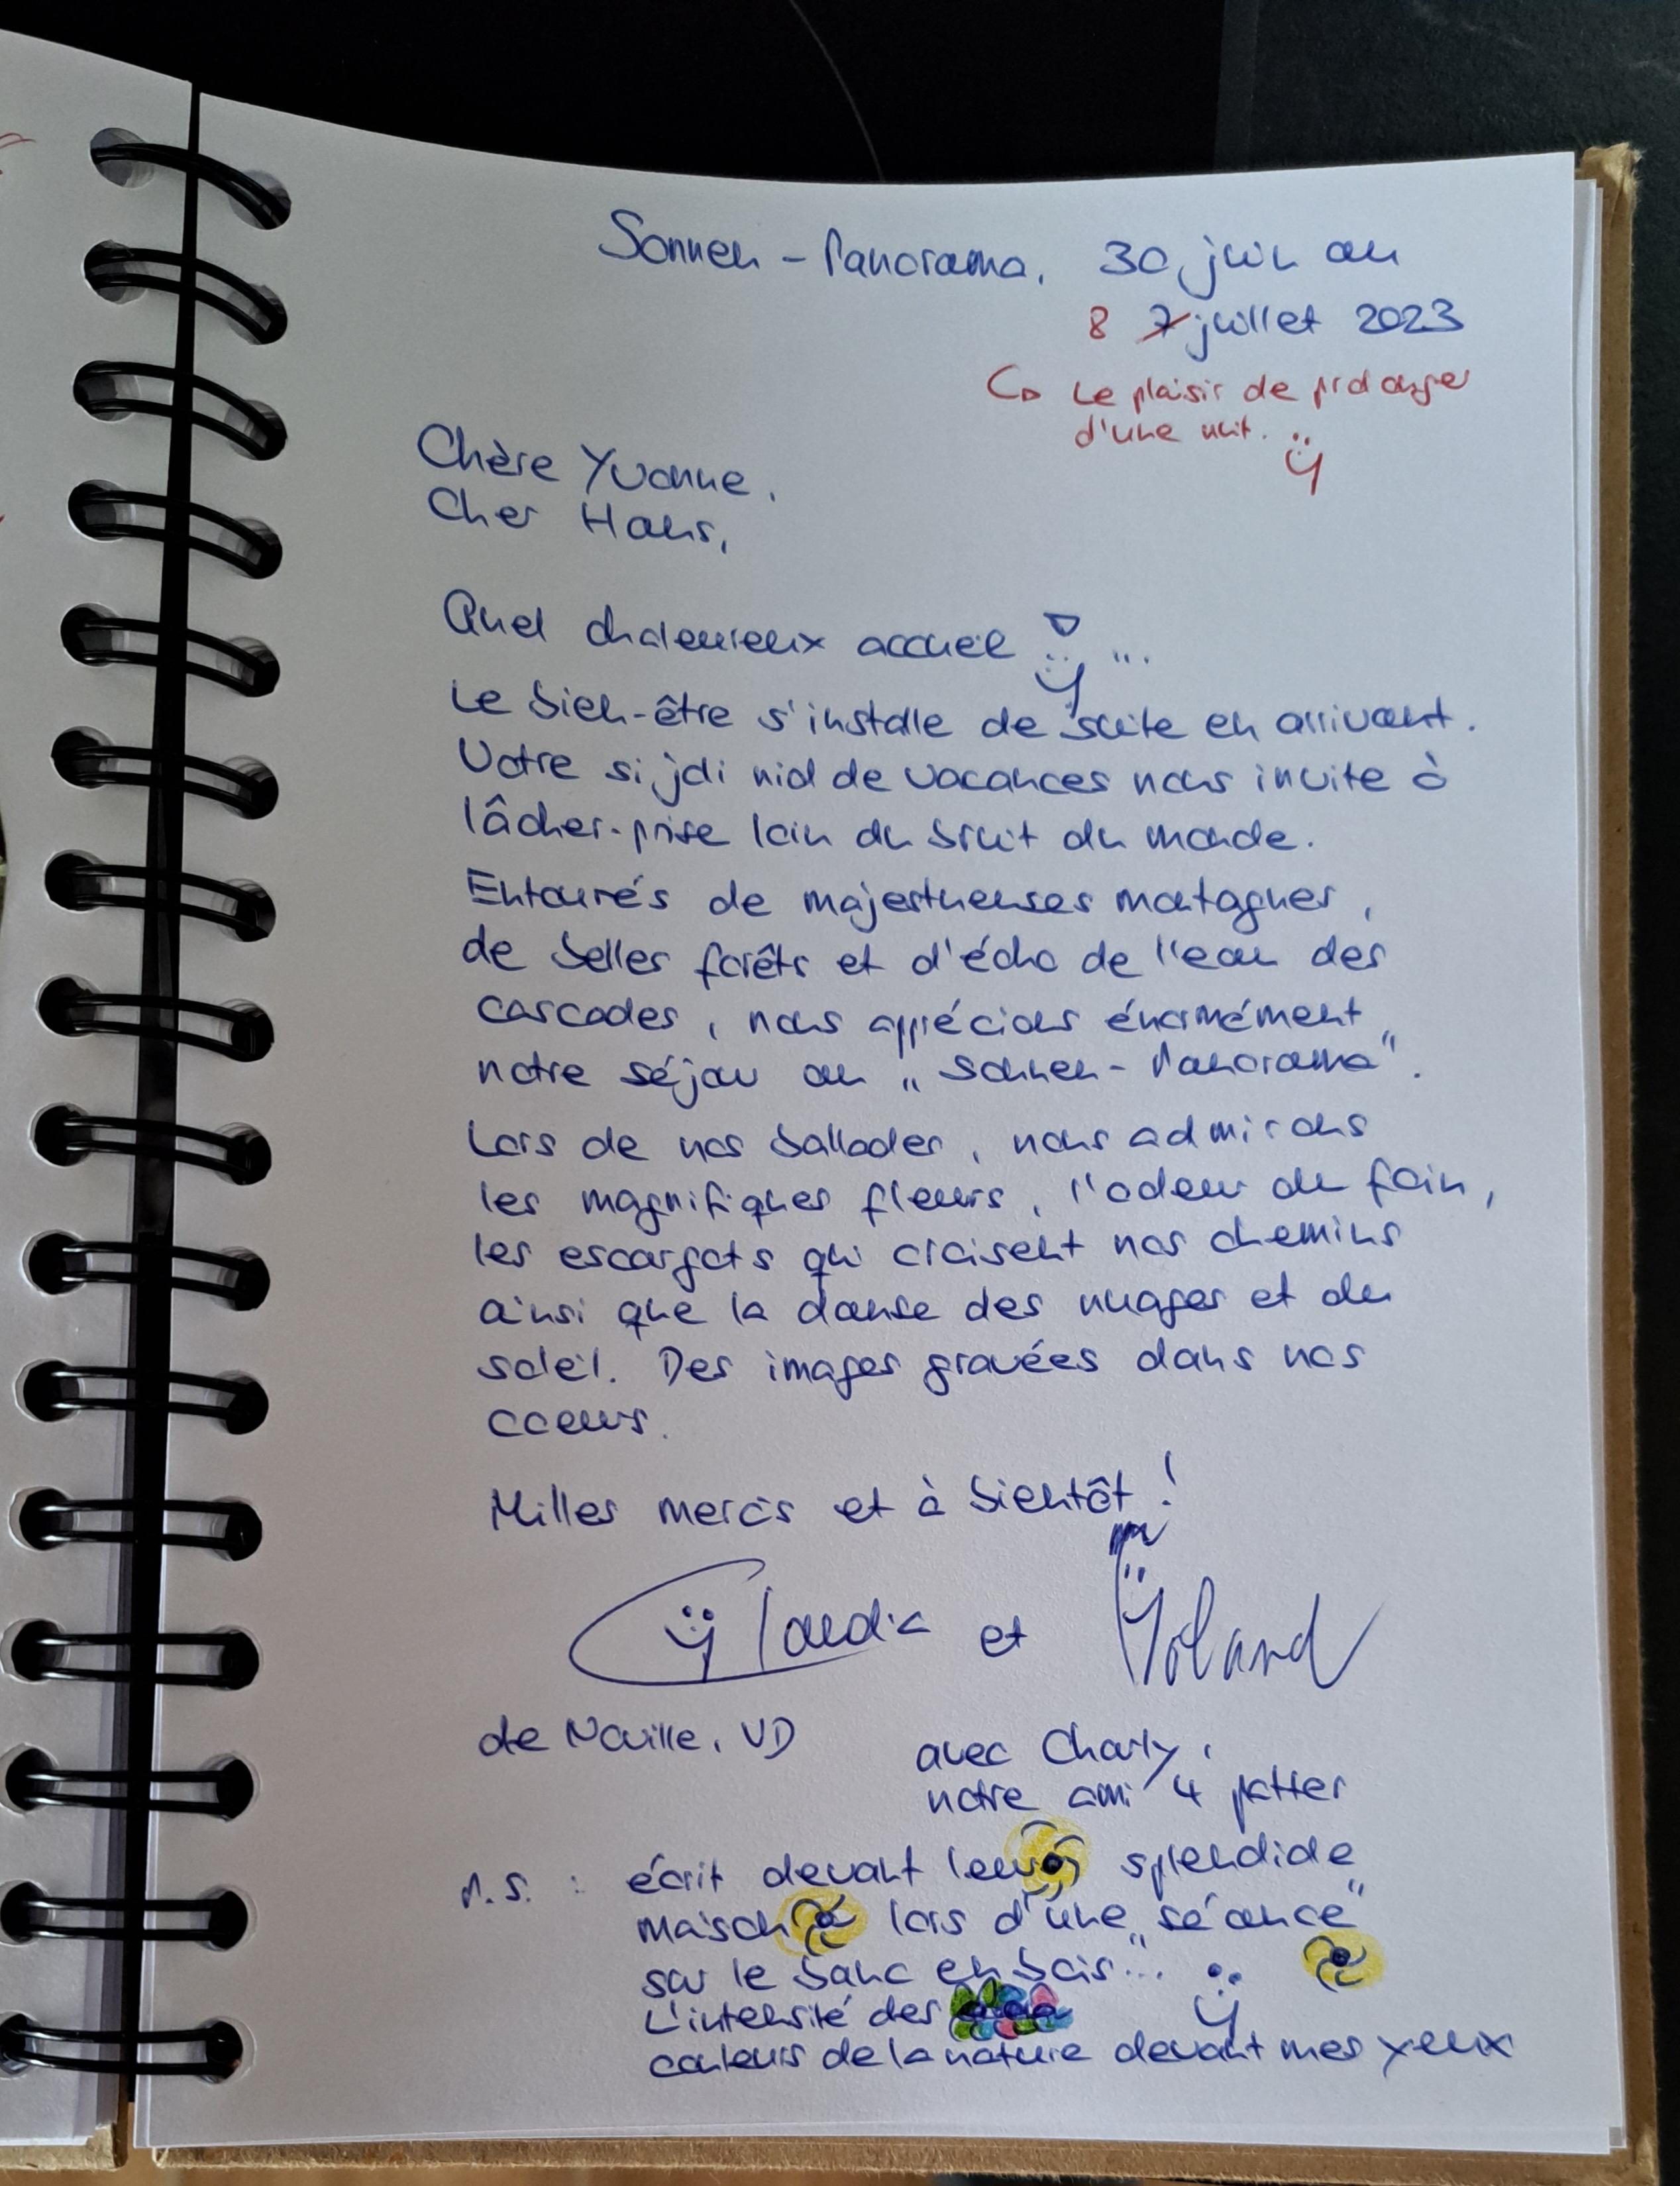 Sonnen - Panorama, 30 juin au
8 7 juillet 2023
Le plaisir de prolonger
d'une nuit.
Chère Yvonne,
Cher Hans,
Quel chaleureux accueil ...
Le bien-être s'installe de suite en arrivant.
Votre si joli nid de vacances nous invite à
lâcher-prise loin du bruit du monde.
Entourés de majestueuses montagnes,
de belles forêts et d'écho de l'eau des
cascades, nous apprécions énormément
notre séjour au „Sonnen-Panorama".
Lors de nos ballades, nous admirons
les magnifiques fleurs, l'odeur du foin,
les escargots qui croisent nos chemins
ainsi que la danse des nuages et du
soleil. Des images gravées dans nos
coeurs.
Milles mercis et à bientôt !
Claudia et Roland
de Noville, VD
avec Charly,
notre ami 4 pattes
P.S. : écrit devant leur splendide
maison lors d'une „séance"
sur le banc en bois"...
L'intensité des
couleurs de la nature devant mes yeux